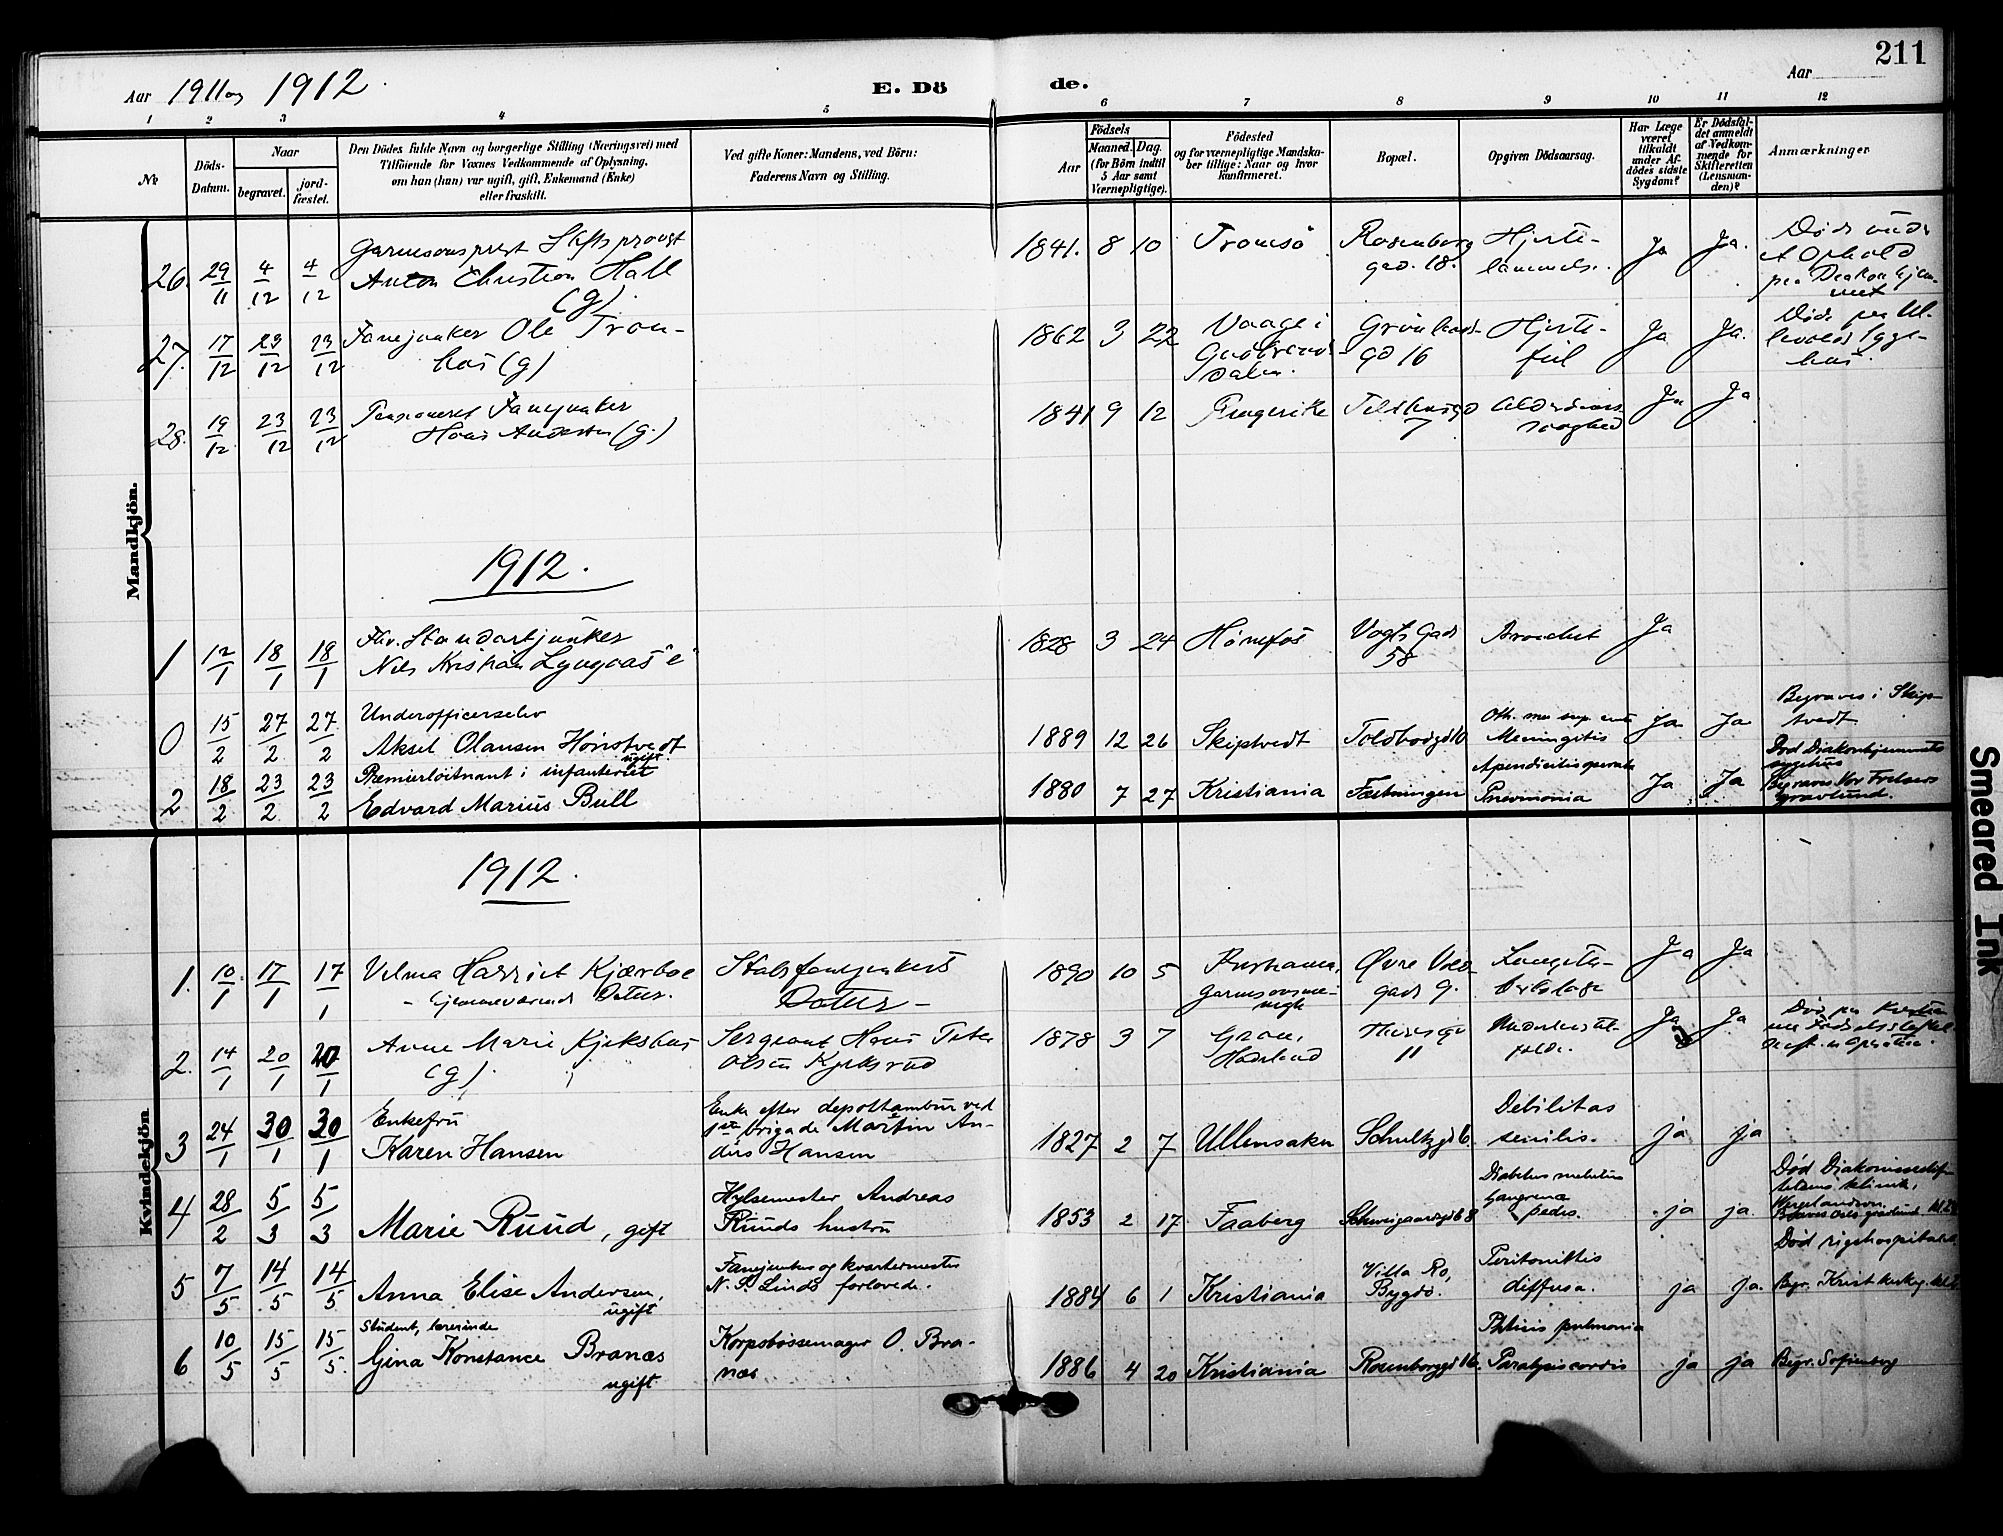 211
Aar 1911 og 1912.
E. Dö de.
Aar
1 2 3 4 5 6 7 8 9 10 11 12
№
Döds-
Datum.
Naar
begravet.
jord-
fæstet.
Den Dödes fulde Navn og borgerlige Stilling (Næringsvei) med
Tilföiende for Voxnes Vedkommende af Oplysning,
om han (hun) var ugift, gift, Enkemand (Enke)
eller fraskilt.
Ved gifte Koner: Mandens, ved Börn:
Faderens Navn og Stilling.
Födsels
Aar
Maaned. Dag.
(for Börn indtil
5 Aar samt
Værnepligtige).
Födested
og for værnepligtige Mandska-
ber tillige: Naar og hvor
konfirmeret.
Bopæl.
Opgiven Dödsaarsag.
Har Læge
været
tilkaldt
under Af-
dödes sidste
Sygdom?
Er Dödsfal-
det anmeldt
af Vedkom-
mende for
Skifteretten
(Lensman-
den)?
Anmærkninger
Mandkjön.
26. 29/11 4/12 4/12 Garnisonsprest Stiftsprovst
Anton Christian Hall
(g).
1841. 8 10 Tromsö Rosenborg
gad. 18. Hjerte-
lammelse. Ja Ja. Död under
et Ophold
paa Diakonhjem-
met
27. 17/12 23/12 23/12 Fanejunker Ole Tron-
hus (g)
1862 3 22 Vaage i
Gudbrands-
dalen.
gd 16 Hjerte-
feil Ja Ja. Död paa Ul-
levold syge-
hus.
28. 19/12 23/12 23/12 Pensioneret Fanejunker
Hans Andersen (g.)
1841 9 12 Ringerike 7 Alderdoms
svaghed Ja Ja
1912.
1 12/1 18/1 18/1 Fhv. Standartjunker
Nils Kristian Lyngaas "e"
1828 3 24 Hönefos Vogts Gade
58 Ja
0 15/2 27/2 27/2 Underofficerselev
Aksel Olausen Hönstvedt
ugift.
1889 12 26 Skiptvedt Toldbodgd 10 Meningitis Ja Ja Begraves i Skip-
tvedt
2 18/2 23/2 23/2 Premierlöitnant i infanteriet
Edvard Marius Bull
1880 7 27 Kristiania Fæstningen Apendicitis operata
Pneumonia Ja Ja Död Diakonhjemmets
sygehus
Begraves Vor Frelsers
gravlund.
Kvindekjön
1912.
1. 10/1 17/1 17/1 Vilma Harriet Kjærboe
- hjemmeværende Datter.
Stabsfanejunkers
Datter -
1890 10 5 Garnisonsme-
nigh Øvre Vold
gade 9. Ja Ja
2. 14/1 20/1 20/1 Anne Marie Kjeksrud
(g).
Sergeant Hans Peter
Olsen Kjeksrud
1878 3 7 Gran,
Hadeland 11 Ja Ja
3 24/1 30/1 30/1 Enkefru
Karen Hansen
Enke efter depottambur ved
1ste brigade Martin An-
ders Hansen
1827 2 7 Ullensaker Schultzgd 6. Debilitas
senilis. ja ja
4 28/2 5/3 5/3 Marie Ruud, gift
Hylsemester Andreas
Ruuds hustru
1853 2 17 Faaberg Schweigaardsgd 68 Diabetes mellitus
Gangrena
pedis. ja ja.
5 7/5 14/5 14/5 Anna Elise Andersen,
ugift
Fanejunker og kvartermester
N. P. Linds forlovede.
1884 6 1 Kristiania Villa Ro,
Bygdö. Peritonittis
diffusa. ja ja. Död rigshospitalet.
6 10/5 15/5 15/5 Student, lærerinde
Gina Konstance Branæs
ugift
Korpsbössemager O. Bra-
næs
1886 4 20 Kristiania Rosenborggd 16. Phtisis pulmonia
Paralysis cordis ja ja Begr. Sofienberg
Smeared Ink